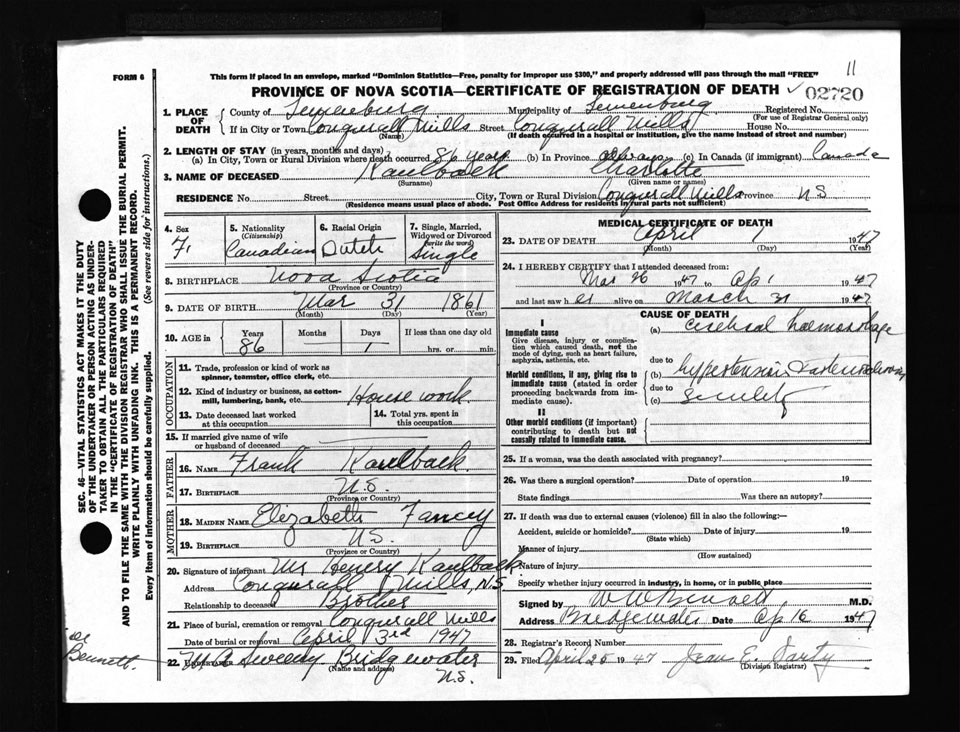 11
FORM 6
This form if placed in an envelope, marked "Dominion Statistics—Free, penalty for improper use $300," and properly addressed will pass through the mail "FREE"
PROVINCE OF NOVA SCOTIA—CERTIFICATE OF REGISTRATION OF DEATH
02720
1. PLACE OF DEATH
County of Lunenburg Municipality of Lunenburg Registered No.
(For use of Registrar General only)
If in City or Town Conquerall Mills Street Conquerall Mills House No.
(Name) (If death occurred in a hospital or institution, give the name instead of street and number)
2. LENGTH OF STAY (in years, months and days)
(a) In City, Town or Rural Division where death occurred 86 years (b) In Province always (c) In Canada (if immigrant) Canada
3. NAME OF DECEASED Kaulback Charlotte
(Surname) (Given name or names)
RESIDENCE No. Street City, Town or Rural Division Conquerall Mills Province N.S
(Residence means usual place of abode. Post Office Address for residents in rural parts not sufficient)
4. Sex F.
5. Nationality (Citizenship) Canadian
6. Racial Origin Dutch
7. Single, Married, Widowed or Divorced (write the word) Single
8. BIRTHPLACE Nova Scotia
(Province or Country)
9. DATE OF BIRTH Mar 31 1861
(Month) (Day) (Year)
10. AGE in Years Months Days If less than one day old
86 — 1 hrs. or min.
OCCUPATION
11. Trade, profession or kind of work as spinner, teamster, office clerk, etc.
12. Kind of industry or business, as cotton-mill, lumbering, bank, etc. House work
13. Date deceased last worked at this occupation
14. Total yrs. spent in this occupation
15. If married give name of wife or husband of deceased
FATHER
16. NAME Frank Kaulback
17. BIRTHPLACE N.S.
(Province or Country)
MOTHER
18. MAIDEN NAME Elizabeth Fancey
19. BIRTHPLACE N.S.
(Province or Country)
20. Signature of informant Mr Henery Kaulback
Address Conquerall Mills, N.S
Relationship to deceased Brother
21. Place of burial, cremation or removal Conquerall Mills
Date of burial or removal April 3rd 1947
22. UNDERTAKER Sweeny Bridgewater
(Name and address)
N.S.
Bennett.
MEDICAL CERTIFICATE OF DEATH
23. DATE OF DEATH April 1 1947
(Month) (Day) (Year)
24. I HEREBY CERTIFY that I attended deceased from:
Mar 26 1947 to Ap 1 1947
and last saw her alive on March 31 1947
CAUSE OF DEATH
I
Immediate cause
Give disease, injury or complication which caused death, not the mode of dying, such as heart failure, asphyxia, asthenia, etc.
(a) cerebral haemorrhage
due to
Morbid conditions, if any, giving rise to immediate cause (stated in order proceeding backwards from immediate cause).
(b) hypertension & arteriosclerosis
due to
(c) senility
II
Other morbid conditions (if important) contributing to death but not causally related to immediate cause.
25. If a woman, was the death associated with pregnancy?
26. Was there a surgical operation? Date of operation 19
State findings Was there an autopsy?
27. If death was due to external causes (violence) fill in also the following:—
Accident, suicide or homicide? Date of injury 19
(State which)
Manner of injury
(How sustained)
Nature of injury
Specify whether injury occurred in industry, in home, or in public place
Signed by W W Bennett M.D.
Address Bridgewater Date Ap 16 1947
28. Registrar's Record Number
29. Filed April 25 1947 Jean E.
(Division Registrar)
SEC. 46—VITAL STATISTICS ACT MAKES IT THE DUTY
OF THE UNDERTAKER OR PERSON ACTING AS UNDER-
TAKER TO OBTAIN ALL THE PARTICULARS REQUIRED
IN THE "CERTIFICATE OF REGISTRATION OF DEATH"
AND TO FILE THE SAME WITH THE DIVISION REGISTRAR WHO SHALL ISSUE THE BURIAL PERMIT.
WRITE PLAINLY WITH UNFADING INK. THIS IS A PERMANENT RECORD.
Every item of information should be carefully supplied. (See reverse side for instructions.)